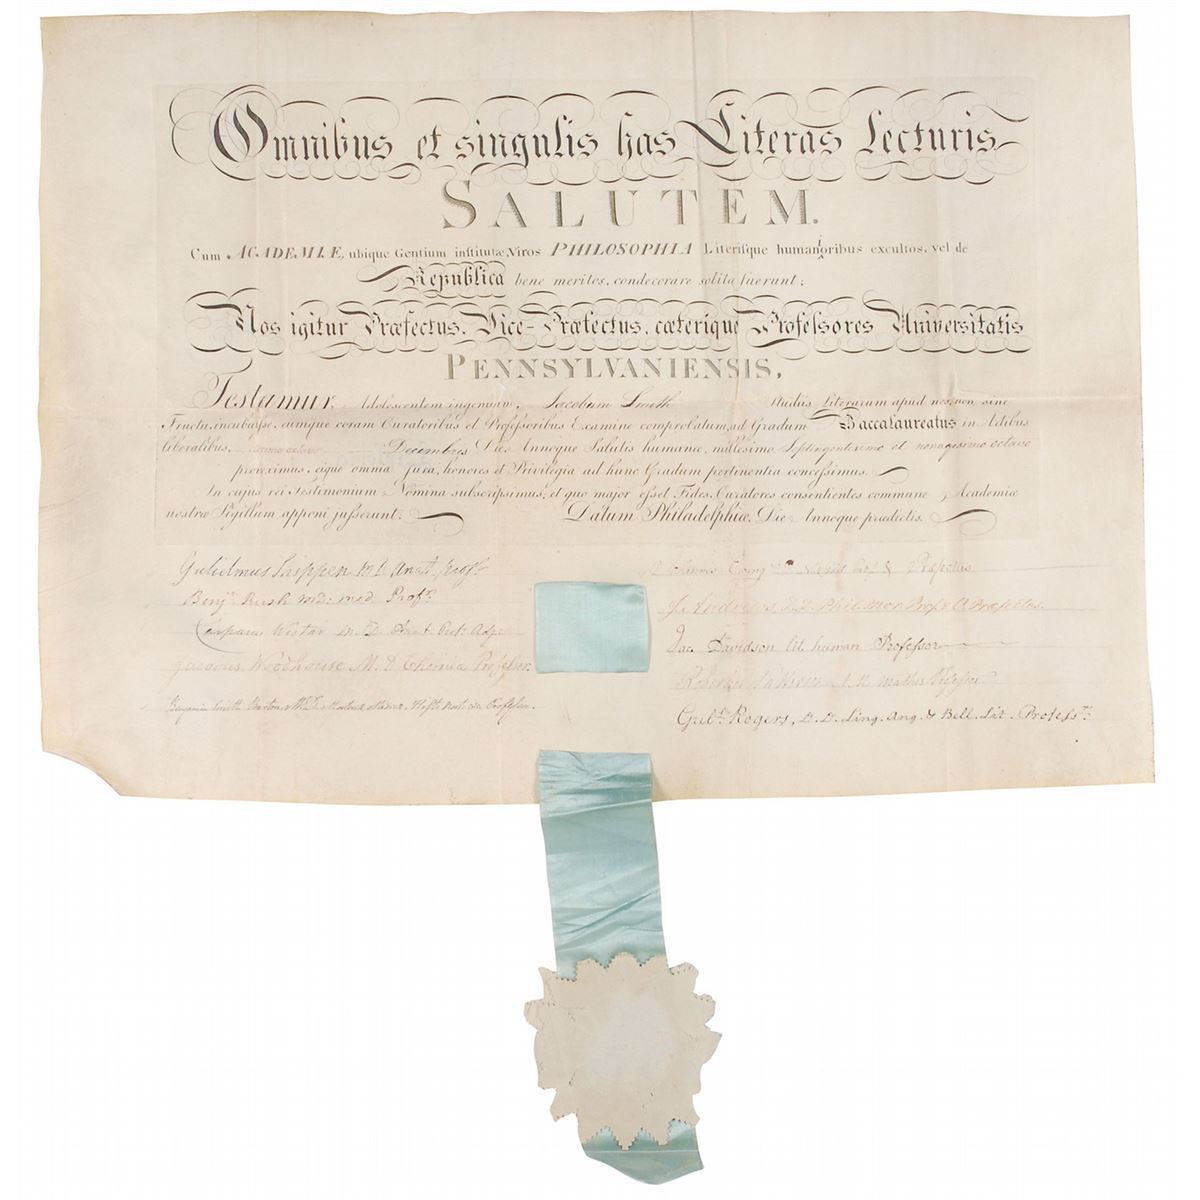 Omnibus et singulis has Literas Lecturis
SALUTEM.
Cum ACADEMIÆ, ubique Gentium institutæ, Viros PHILOSOPHIA Literisque humanioribus excultos, vel de
Republica bene meritos, condecorare solitæ fuerunt;
Nos igitur Præfectus, Vice-Præfectus, cæterique Professores Universitatis
PENNSYLVANIENSIS,
Testamur, Adolescentem ingenuum, Jacobum Smith Studiis Literarum apud nos, non sine
Fructu, incubuisse, eumque coram Curatoribus et Professoribus Examine comprobatum, ad Gradum Baccalaureatus in Artibus
liberalibus, octavo Decembris Die Annoque Salutis humanæ, millesimo Septingentesimo et nonagesimo octavo
provexisse, eique omnia jura, honores et Privilegia ad hunc Gradum pertinentia concessimus.
In cujus rei Testimonium Nomina subscripsimus, et quo major esset Fides, Curatores consentientes commune Academiæ
nostræ Sigillum apponi jusserunt. Datum Philadelphiæ, Die Annoque prædictis.
Gulielmus Shippen M.D. Anat. Prof.
Benjn. Rush M.D: Med: Profr.
Casparus Wistar M.D. Anat
Jacobus Woodhouse M.D. Chemiæ Professor.
Benjamin Smith Barton, M.D. Professor.
Præfectus
J. Andrews Phil. Mor. Prof. V. Præfectus.
Jac. Davidson Lit. human. Professor
Patterson A.M. Math. Professor
Gul. Rogers, D.D. Ling. Ang. & Bell. Lit. Professr.